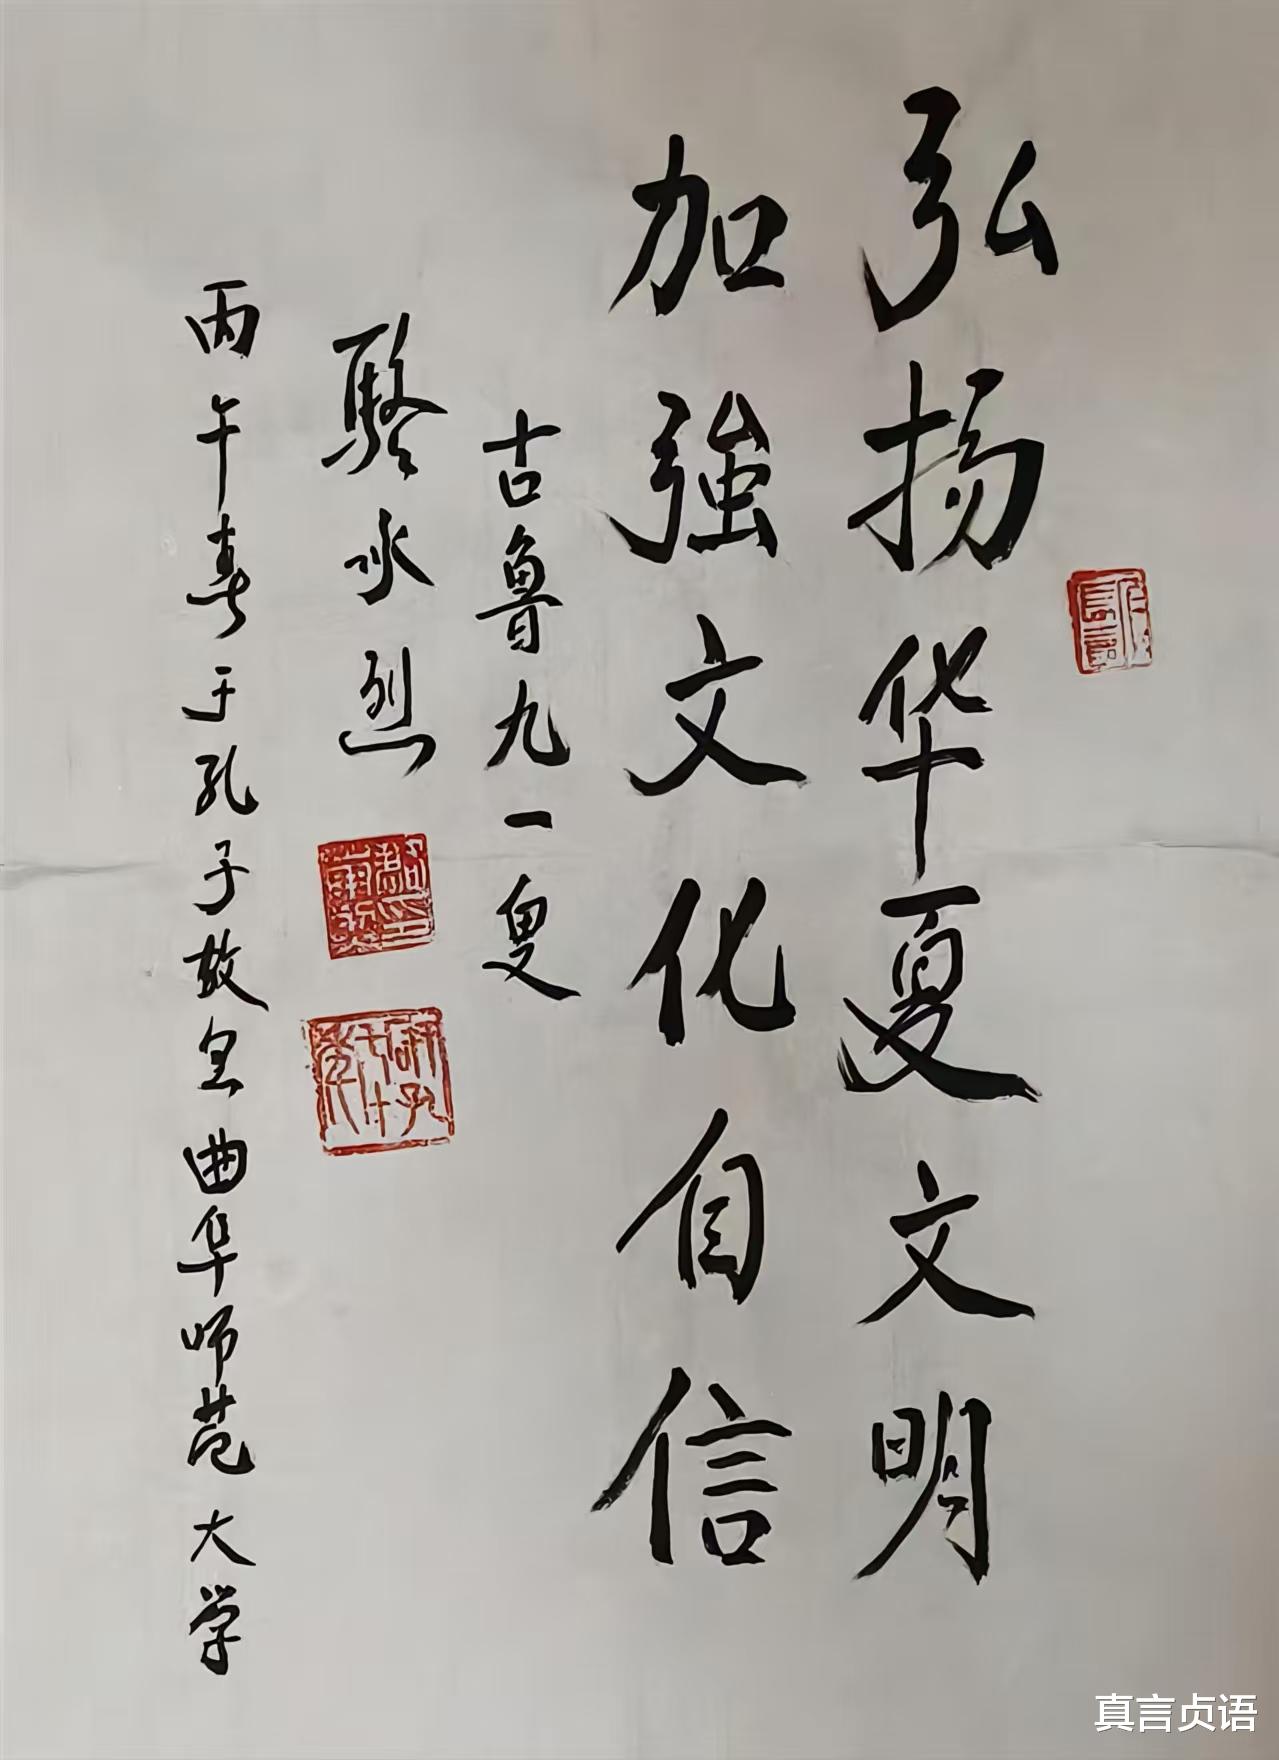 弘扬华夏文明
加強文化自信
古鲁九一叟
骆承烈
丙午春于孔子故里曲阜师范大学
研孔七十年
真言贞语